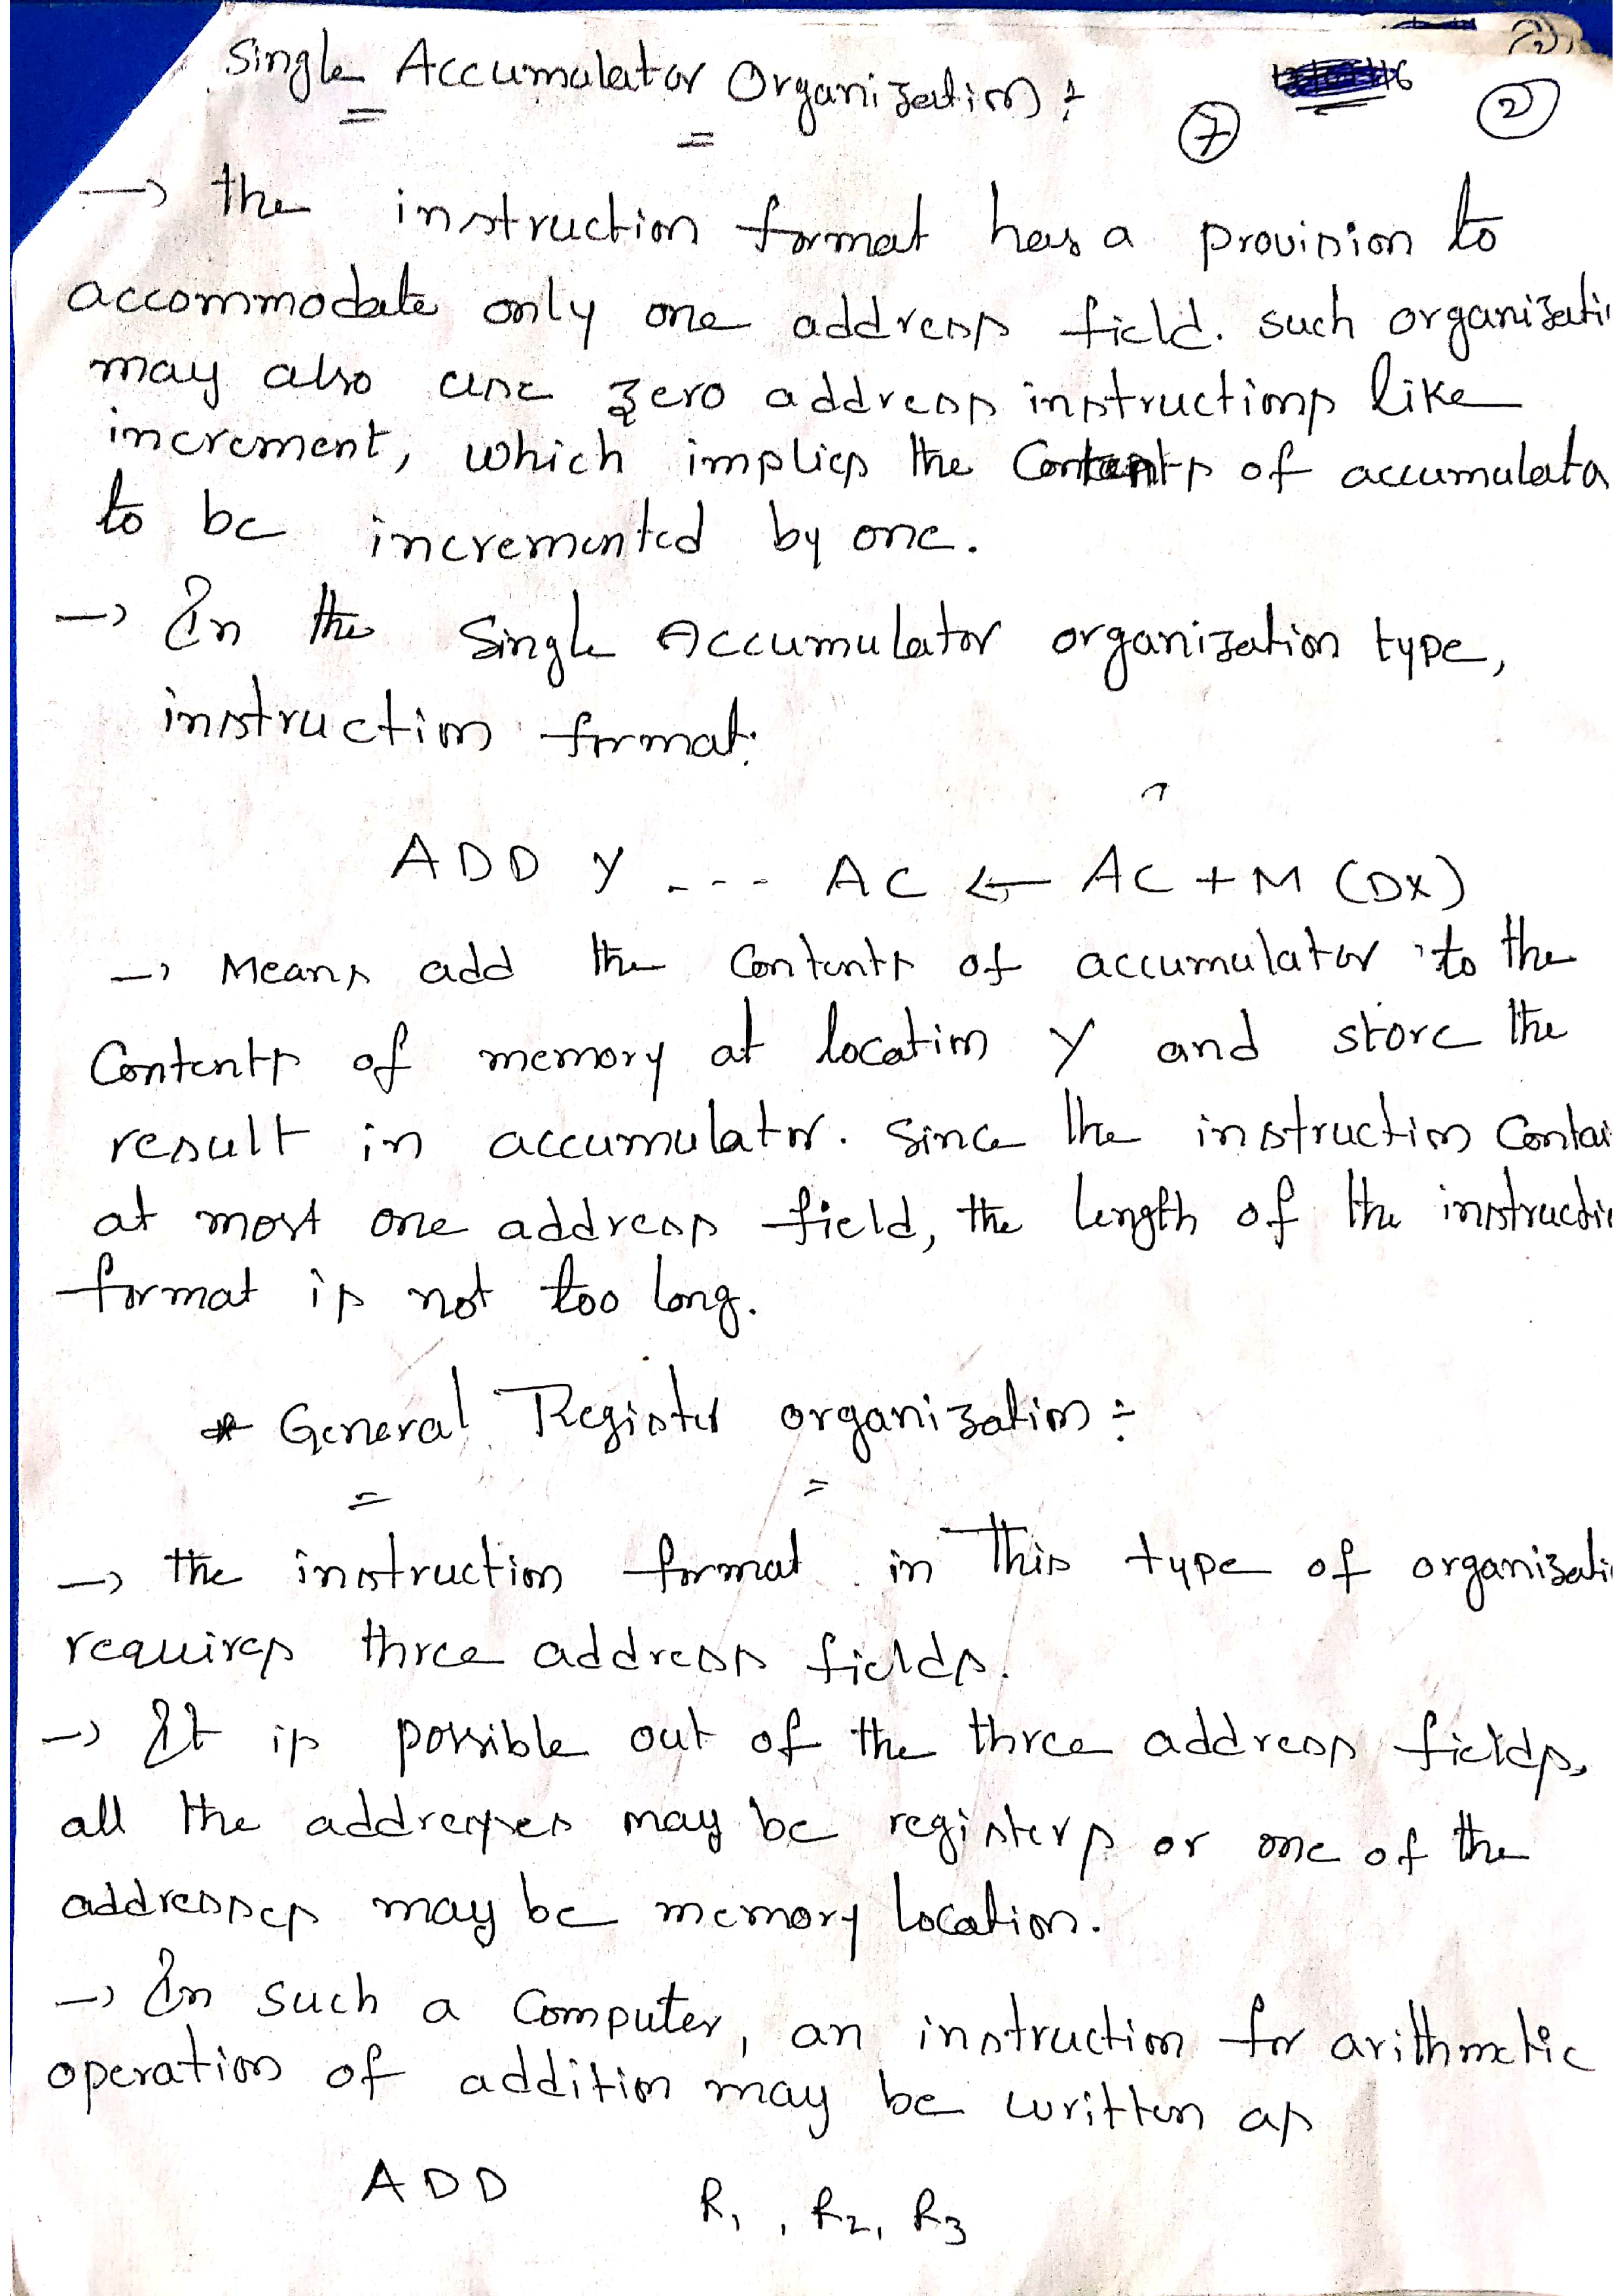 Single Accumulator Organization :
7
2
→ the instruction format has a provision to
accommodate only one address field. such organizati
may also use zero address instructions like
increment, which implies the Contents of accumulato
to be incremented by one.
→ In the Single Accumulator organization type,
instruction format:
ADD Y --- AC ← AC + M (DX)
→ Means add the Contents of accumulator to the
Contents of memory at location Y and store the
result in accumulator. Since the instruction Contai
at most one address field, the length of the instructi
format is not too long.
* General Register organization :
→ the instruction format in This type of organizati
requires three address fields.
→ It is possible out of the three address fields,
all the addresses may be registers or one of the
addresses may be memory location.
→ In such a Computer, an instruction for arithmetic
operation of addition may be written as
ADD R1, R2, R3